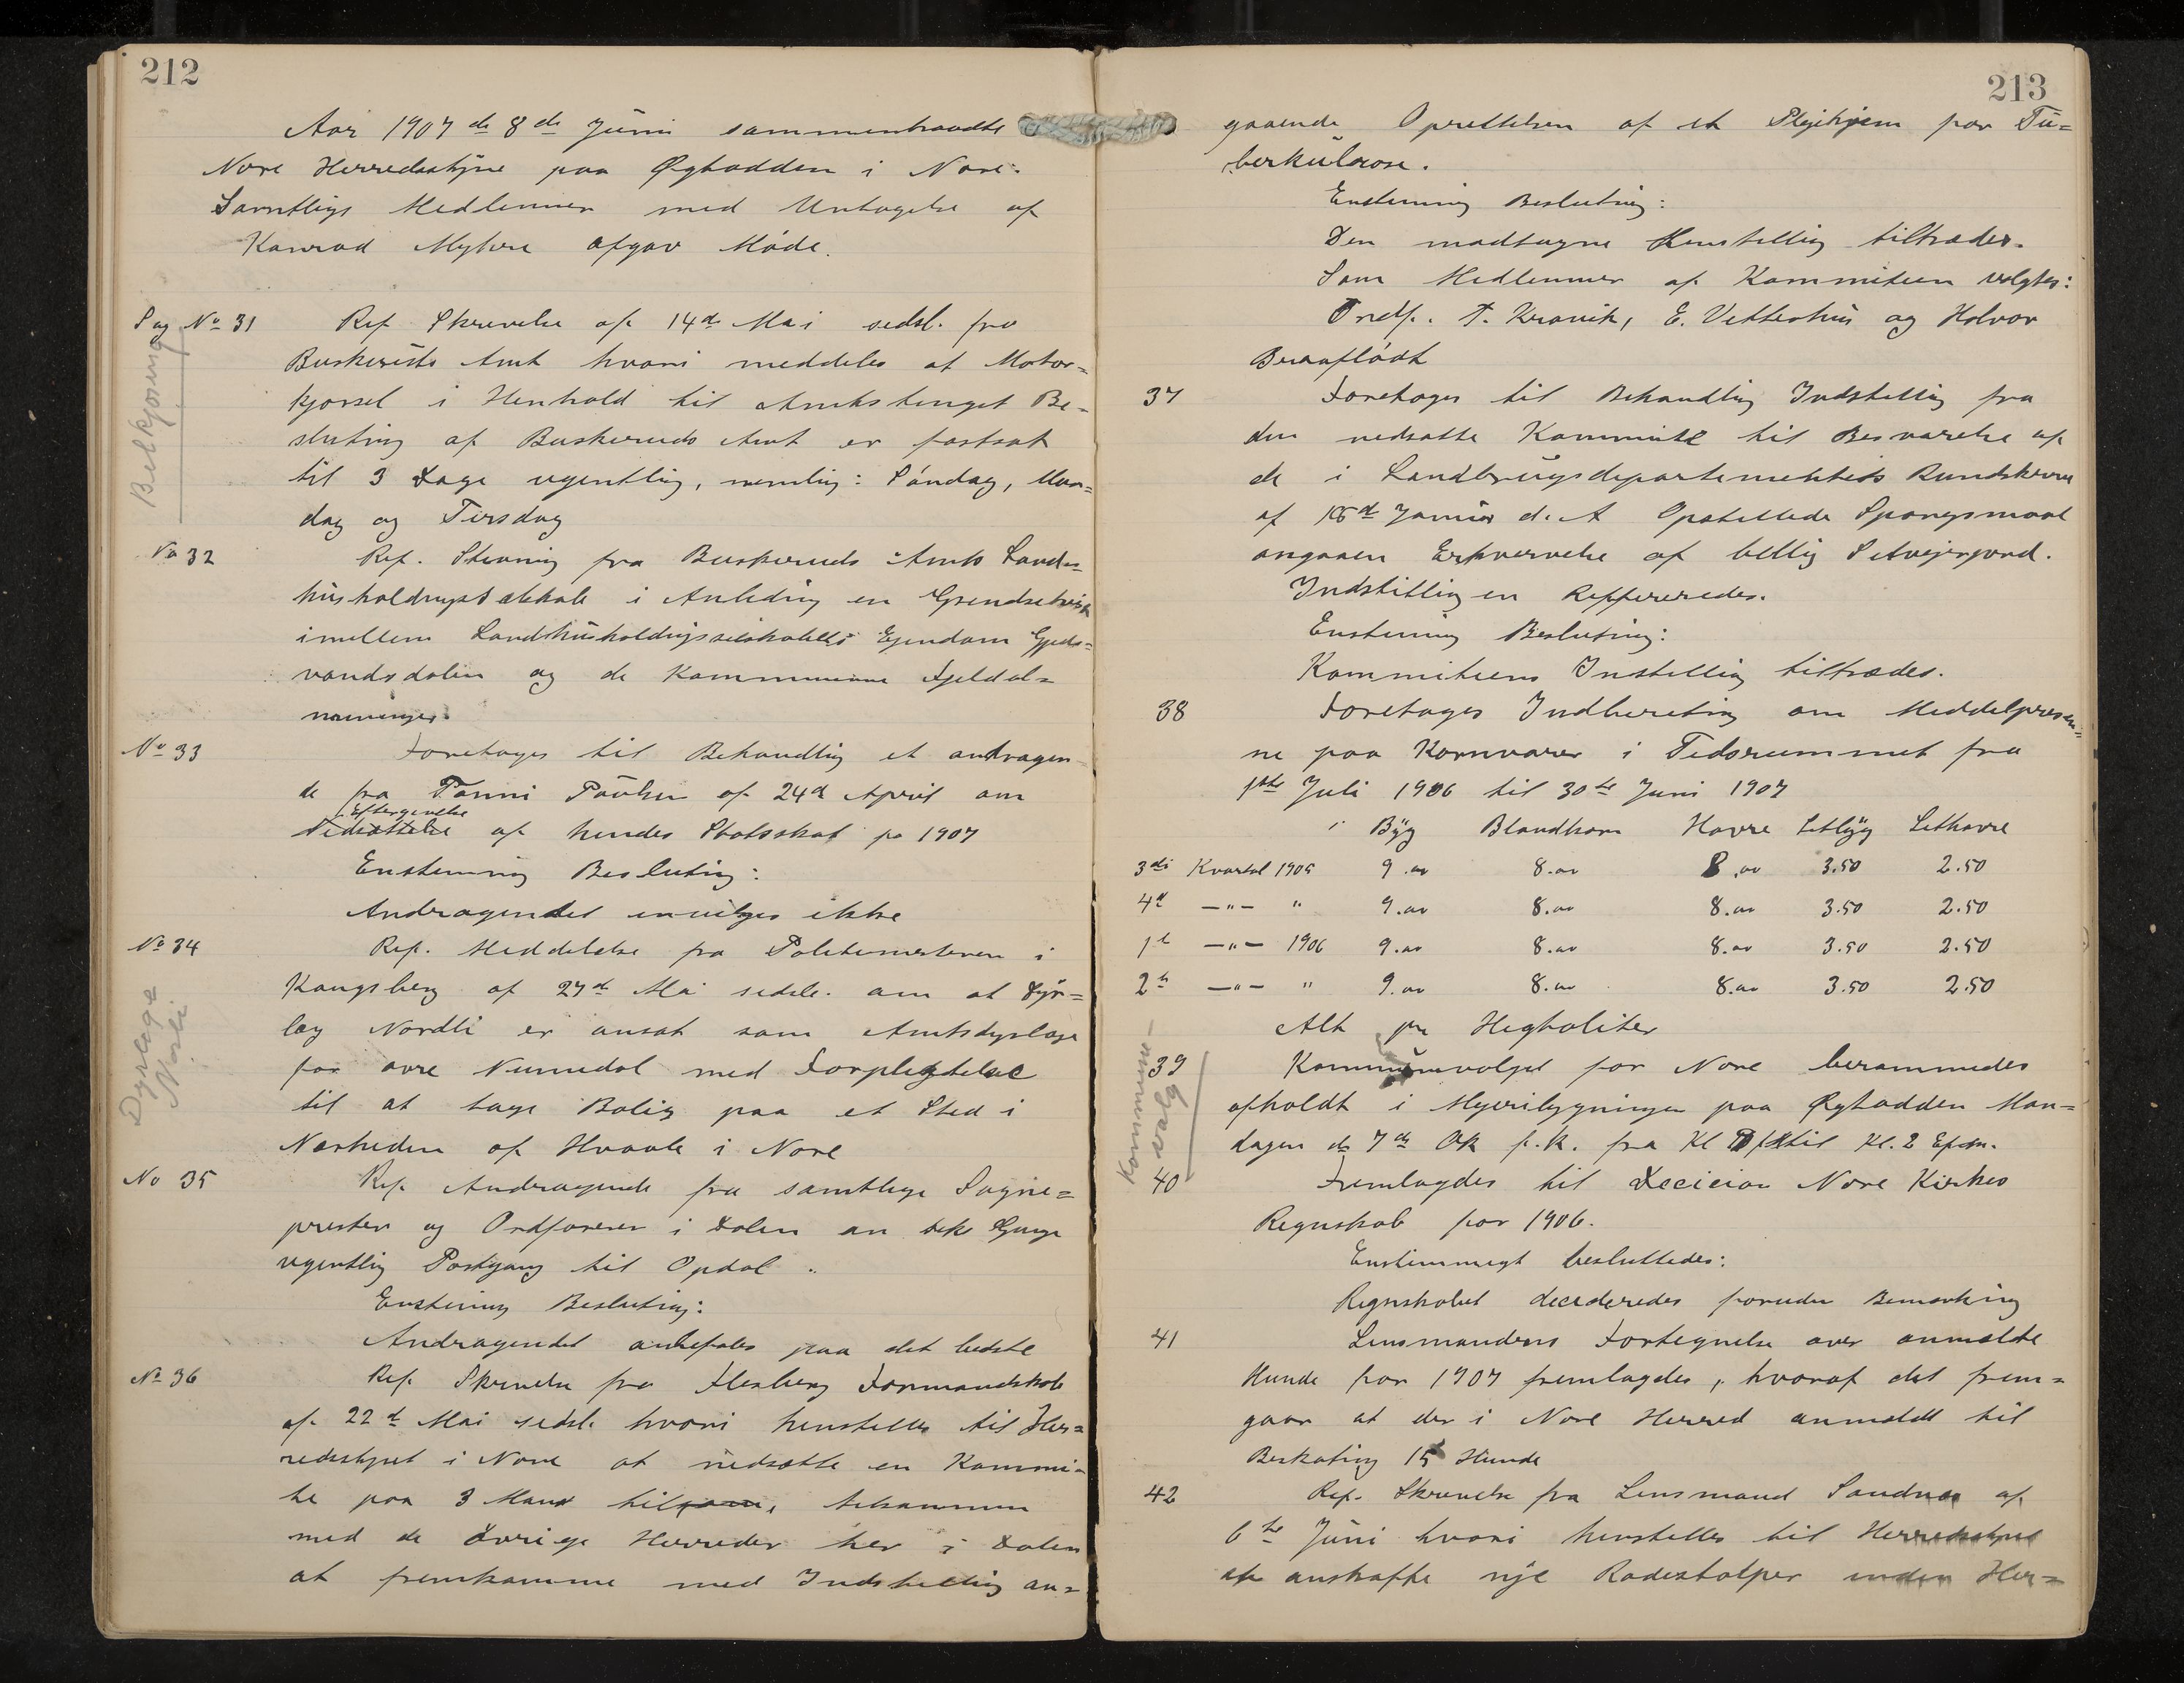 212
Aar 1907 de 8de Juni sammentraadte
Nore Herredsstyre paa Øygtadden i Nore.
Samtlige Medlemmer med Untagelse af
Konrad Myhre afgav Møde.
Sag No 31
Bilkjøring
Ref. Skrivelse af 14de Mai sidstl. fra
Buskeruds Amt hvori meddeles at Motor=
kjørsel i Henhold til Amtstinget Be=
slutning af Buskeruds Amt er fastsat
til 3 Dage ugentlig, nemlig: Søndag, Man=
dag og Tirsdag
No 32
Ref. Stevning fra Buskeruds Amts Lands
husholdngsselskab i Anledning en Grendsetvist
imellem Landhusholdigsselskabets Ejendom Gjeds=
vandsdalen og de Kommunene Fjeldal=
menninger.
No 33
Foretoges til Behandling et andragen
de fra Fanni Paulsen af 24de April om
Eftergivelse
Nedsættelse af hendes Skatsskat pr 1907
Enstemmig Beslutning:
Andragendet invilges ikke
No 34
Dyrlæge
Norli
Ref. Meddelelse fra Politimesteren i
Kongsberg af 27de Mai sidstl. om at Dyr=
læg Nordli er ansat som Amtsdyrlæge
for øvre Numedal med Forpligtelse
til at tage Bolig paa et Sted i
Nærheden af Hvaale i Nore
No 35
Ref. Andragende fra samtlige Sogne=
prester og Ordførerer i Dalen om seks Gange
ugentlig Postgang til Opdal.
Enstemig Beslutnig:
Andragendet anbefales paa det bedste
No 36
Ref. Skrivelse fra Flesberg Formandskab
af 22de Mai sidstl. hvori henstilles til Her=
redsstyret i Nore at nedsætte en Kommi=
te paa 3 Mand til tilsammen
med de øvrige Herreder her i Dalen
at fremkomme med Indstilling an=
213
gaaende Oprettelsen af et Plejehjem for Tu=
berkulose.
Enstemig Beslutning:
Den modtagne Henstillig tiltrædes.
Som Medlemmer af Kommiteen valgtes:
Ordf. T. Kravik, E. Vetterhus og Halvor
Beraaflødt
37
Foretoges til Behandlig Indstillig fra
den nedsatte Kommite til Besvarelse af
de i Landbrugsdepartementets Rundskrive
af 18de Januar d. A Opstillede Spørgsmaal
angaaen Erhvervelse af billig Selvejerjord.
Indstilligen Reffereredes.
Enstemig Beslutnig:
Kommiteens Instillig tiltrædes.
38
Foretoges Indberetnig om Middelprisen=
ne paa Kornvarer i Tidsrummet fra
1ste Juli 1906 til 30te Juni 1907
i Byg Blandkorn Havre Letbyg Lethavre
3die Kvartal 1905 9.00 8.00 8.00 3.50 2.50
4de —"— " 9.00 8.00 8.00 3.50 2.50
1ste —"— 1906 9.00 8.00 8.00 3.50 2.50
2de —"— " 9.00 8.00 8.00 3.50 2.50
Alt pr Hegtoliter
39
Kommune-
valg
Kommunevalget for Nore berammedes
afholdt i Myeribygningen paa Øygtadden Man=
dagen de 7de Ok f.k. fra Kl til Kl. 2 Efm.
40
Fremlagdes til Decicion Nore Kirkes
Regnskab for 1906.
Enstimmigt besluttedes:
Regnskabet decideredes foruden Bemerkning
41
Lensmandens Fortegnelse over anmeldte
Hunde for 1907 fremlagdes, hvoraf det frem=
gaar at der i Nore Herred anmeldt til
Beskatnig 15 Hunde
42
Ref. Skrivelse fra Lensmand Sandnes af
6te Juni hvori henstilles til Herredsstyret
at anskaffe nye Rodestolper inden Her=